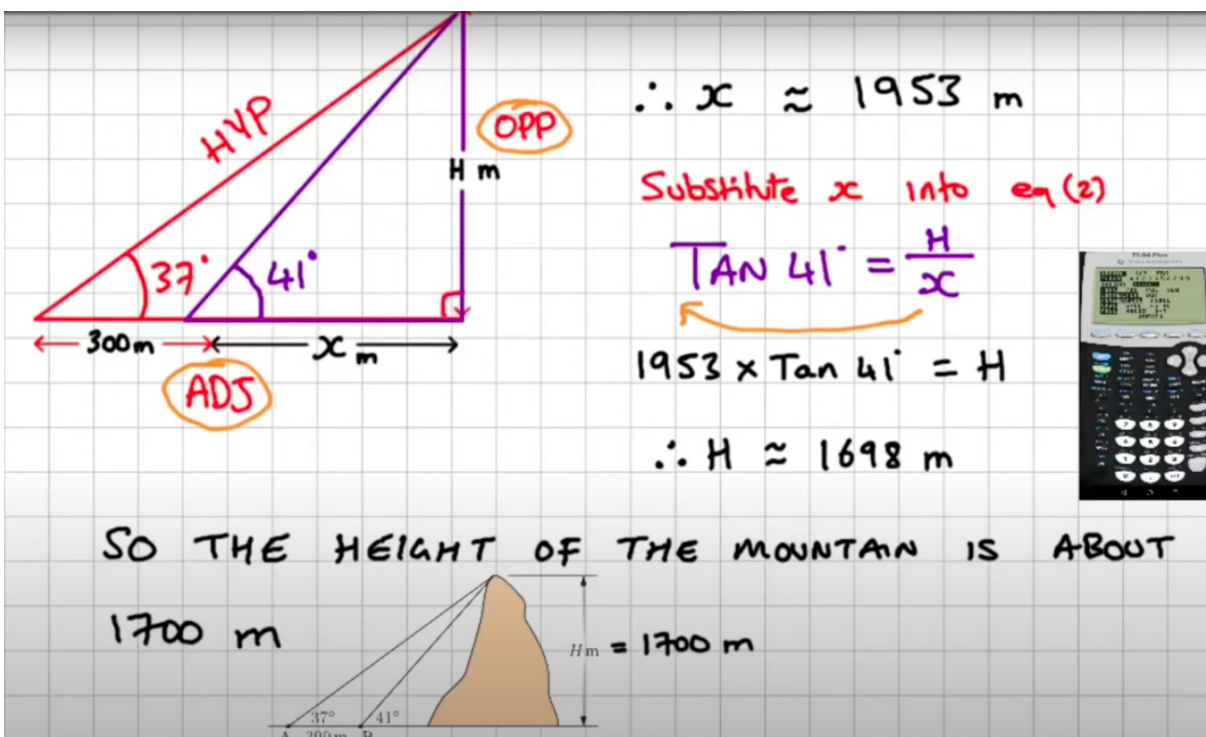 HYP
OPP
H m
37°
41°
300m
x m
ADJ
∴ x ≈ 1953 m
Substitute x into eq (2)
TAN 41° = H/x
1953 × Tan 41° = H
∴ H ≈ 1698 m
SO THE HEIGHT OF THE MOUNTAIN IS ABOUT
1700 m
H m = 1700 m
37°
41°
A 300 m B